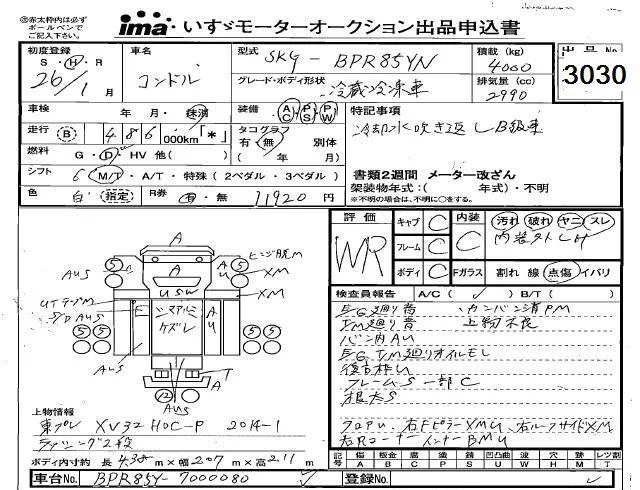 ㊟赤太枠内は必ず
ボールペンで
ご記入下さい。
ima いすゞモーターオークション出品申込書
初度登録
S・H・R
26/1月
車名
コンドル
型式 SKG-BPR85YN
グレード・ボディ形状
冷蔵冷凍車
積載 (kg)
4000
排気量 (cc)
2990
出品 No
3030
車検 年 月・抹消
装備 AC PS PW
特記事項
冷却水吹き返し B級車
走行 B 486 000km「*」
タコグラフ
有・無 別体
( 年 月)
燃料 G・D・HV 他( )
シフト 6 M/T・A/T・特殊 (2ペダル・3ペダル)
書類2週間 メーター改ざん
架装物年式:( 年式)・不明
※不明の場合は、不明に○をする。
色 白 指定 R券 有・無 11920 円
評価
WR
キャブ C
フレーム C
ボディ C
内装 C
Fガラス
汚れ 破れ ヤニ スレ
内装外しH
割れ 線 点傷 イバリ
検査員報告 A/C( ✓ ) B/T( )
EG廻り音 カンバン消PM
TM廻り音 上物不良
バン内AU
EG TM廻りオイルモレ
フレームS 一部C
根太S
フロアU、右FピラーXMU、右ルーフサイドXM
右RコーナーインナーBMU
A
ヒンジ脱M
AUS
XM
USW
UTテープM
S/D AUS
E
A
U
XM
AUS
T
A
AUS
上物情報
東プレ XV32HOC-P 2014-1
ラッシング2段
ボディ内寸約 長 4.38 m×幅 2.07 m×高 2.11 m
記号 傷A 板金B 腐C 塗P 錆S 凹凸曲U 波W 穴H 跡M レツ割T
車台No. BPR85Y-7000080
登録No.